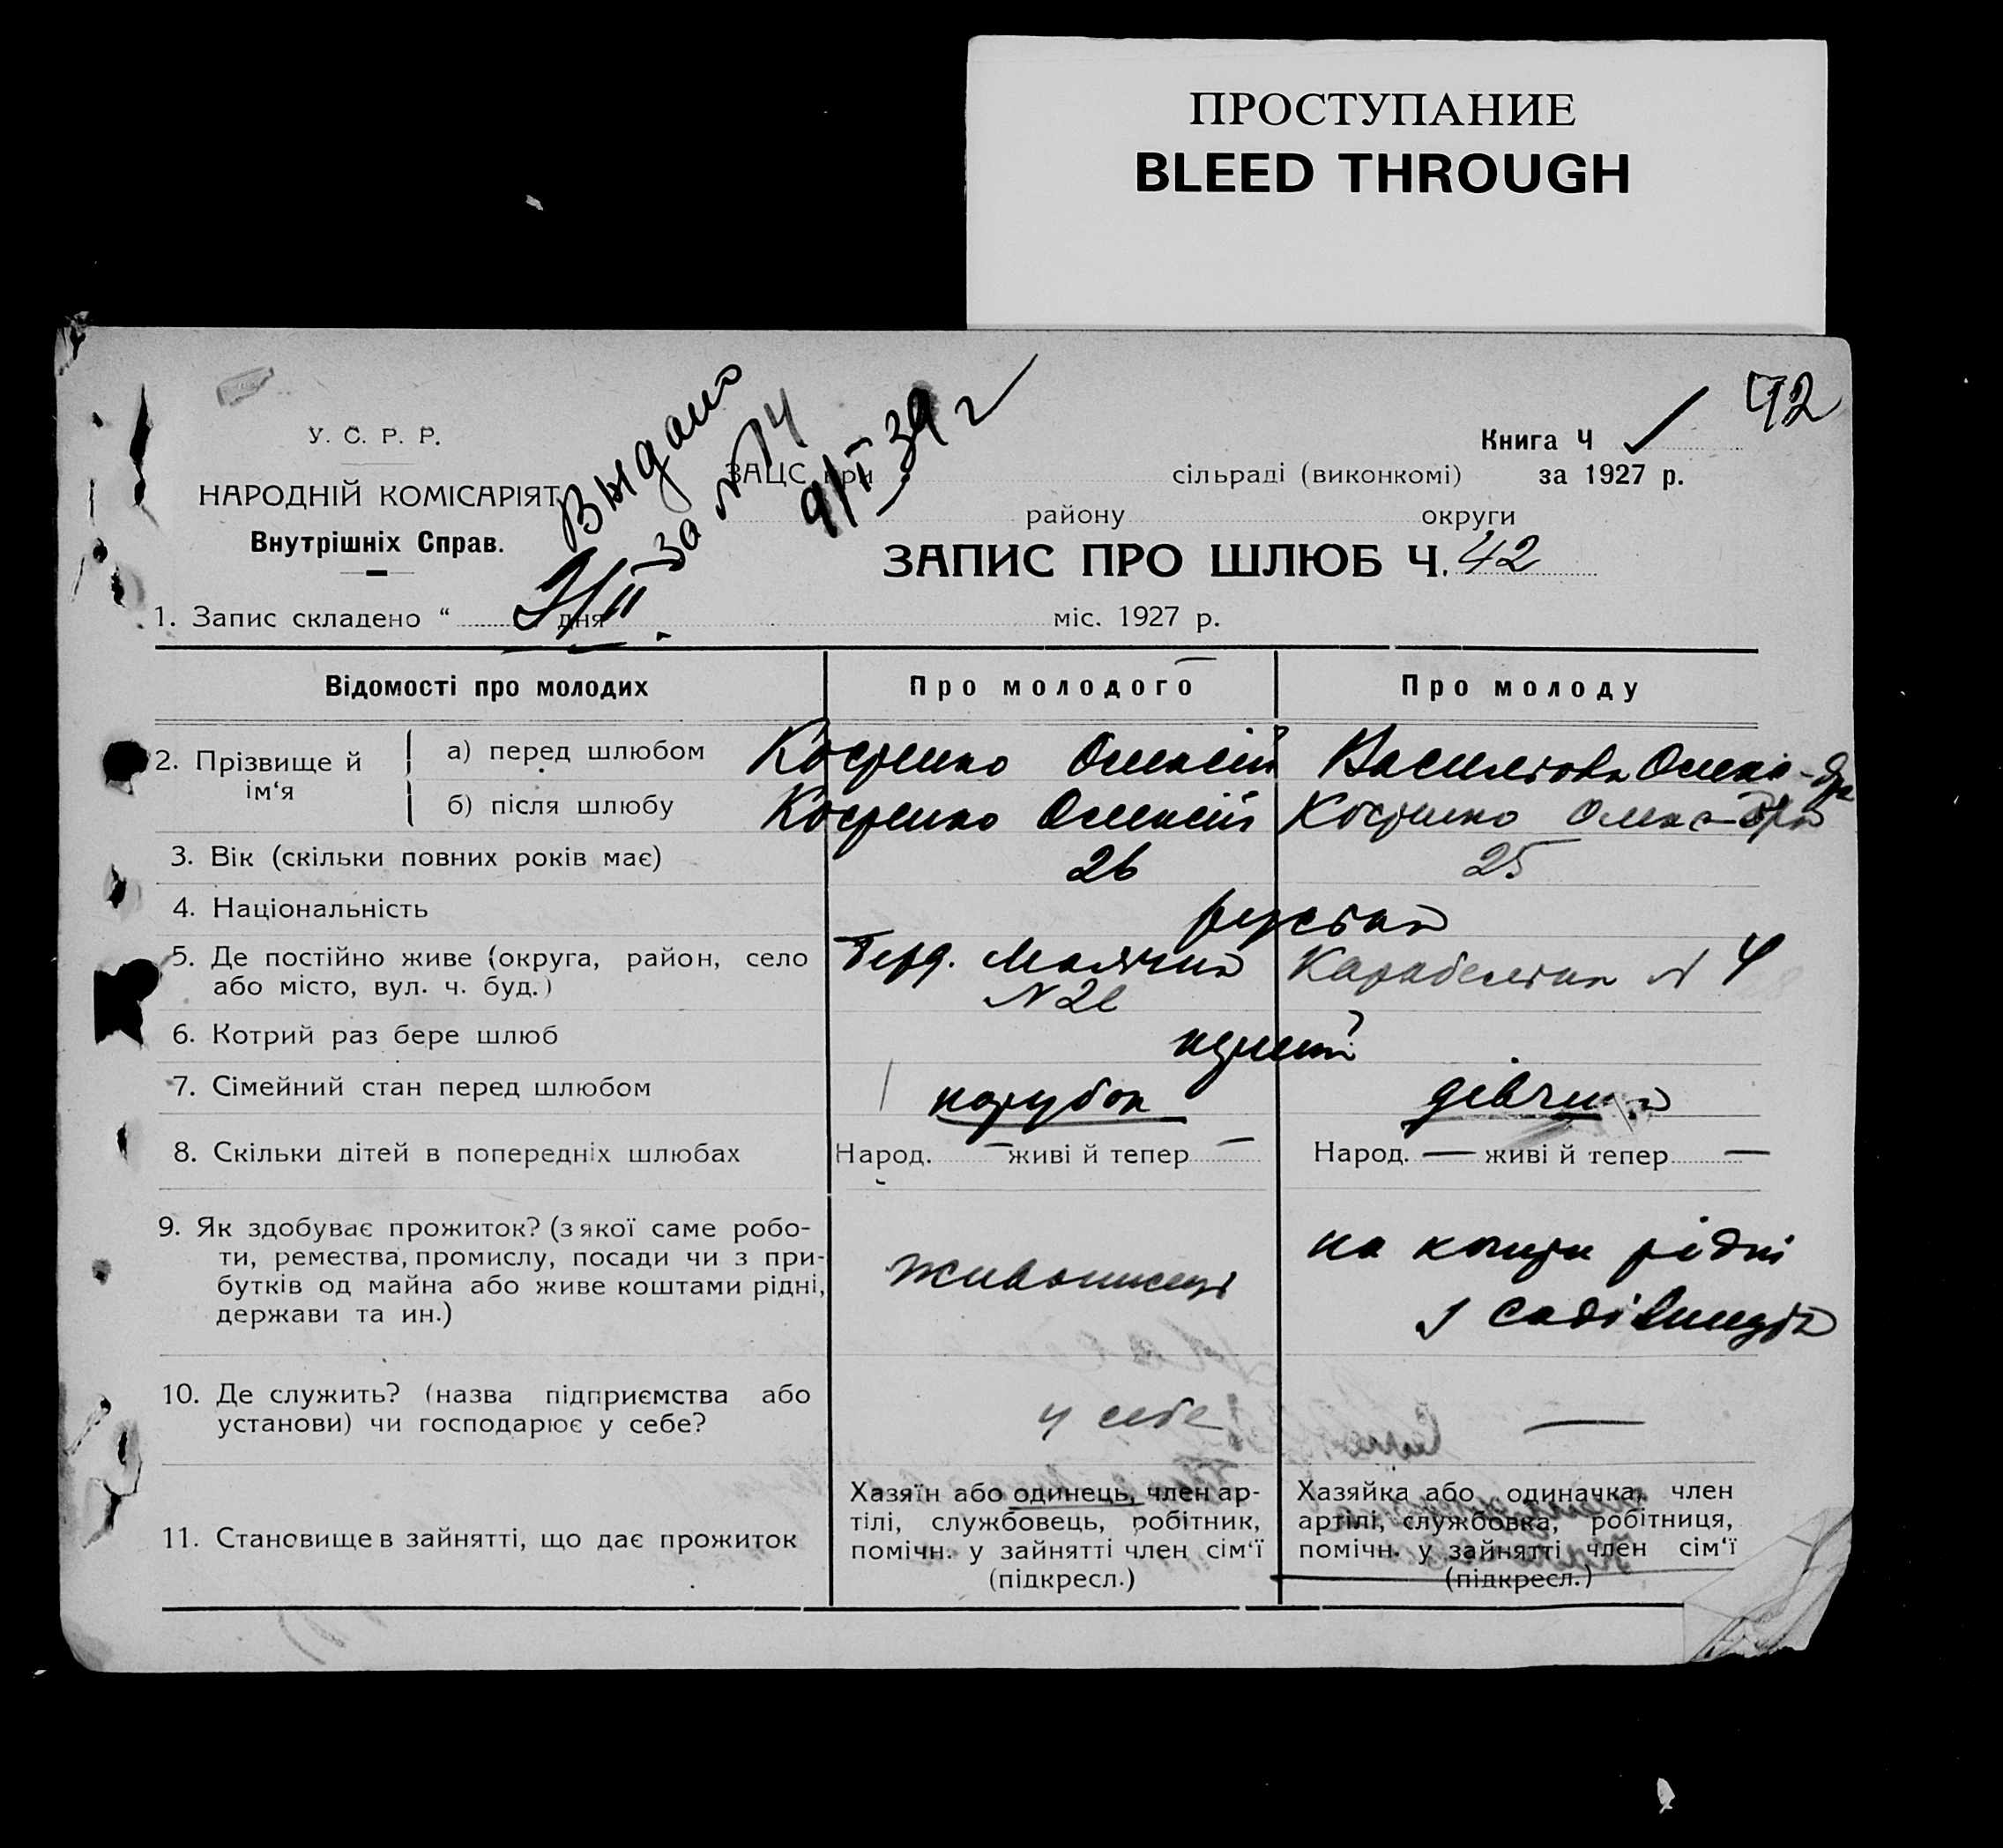 ПРОСТУПАНИЕ
BLEED THROUGH
42
У. С. Р. Р.
НАРОДНІЙ КОМІСАРІЯТ
Внутрішніх Справ.
Выдано
за №
9/II 39 г
Книга Ч
ЗАЦС при сільраді (виконкомі) за 1927 р.
району округи
ЗАПИС ПРО ШЛЮБ Ч. 42
1. Запис складено “ дня міс. 1927 р.
Відомості про молодих Про молодого Про молоду
2. Прізвище й ім‘я
а) перед шлюбом Олексій Олександра
б) після шлюбу Олексій Олександра
3. Вік (скільки повних років має) 26 25
4. Національність
5. Де постійно живе (округа, район, село
або місто, вул. ч. буд.)
6. Котрий раз бере шлюб
7. Сімейний стан перед шлюбом парубок дівчина
8. Скільки дітей в попередніх шлюбах Народ. — живі й тепер — Народ. — живі й тепер —
9. Як здобуває прожиток? (з якої саме робо-
ти, ремества, промислу, посади чи з при-
бутків од майна або живе коштами рідні,
держави та ин.)
живописець
на кошти рідні
10. Де служить? (назва підприємства або
установи) чи господарює у себе?
у себе —
11. Становище в зайнятті, що дає прожиток
Хазяїн або одинець, член ар-
тілі, службовець, робітник,
помічн. у зайнятті член сім‘ї
(підкресл.)
Хазяйка або одиначка, член
артілі, службовка, робітниця,
помічн. у зайнятті член сім‘ї
(підкресл.)